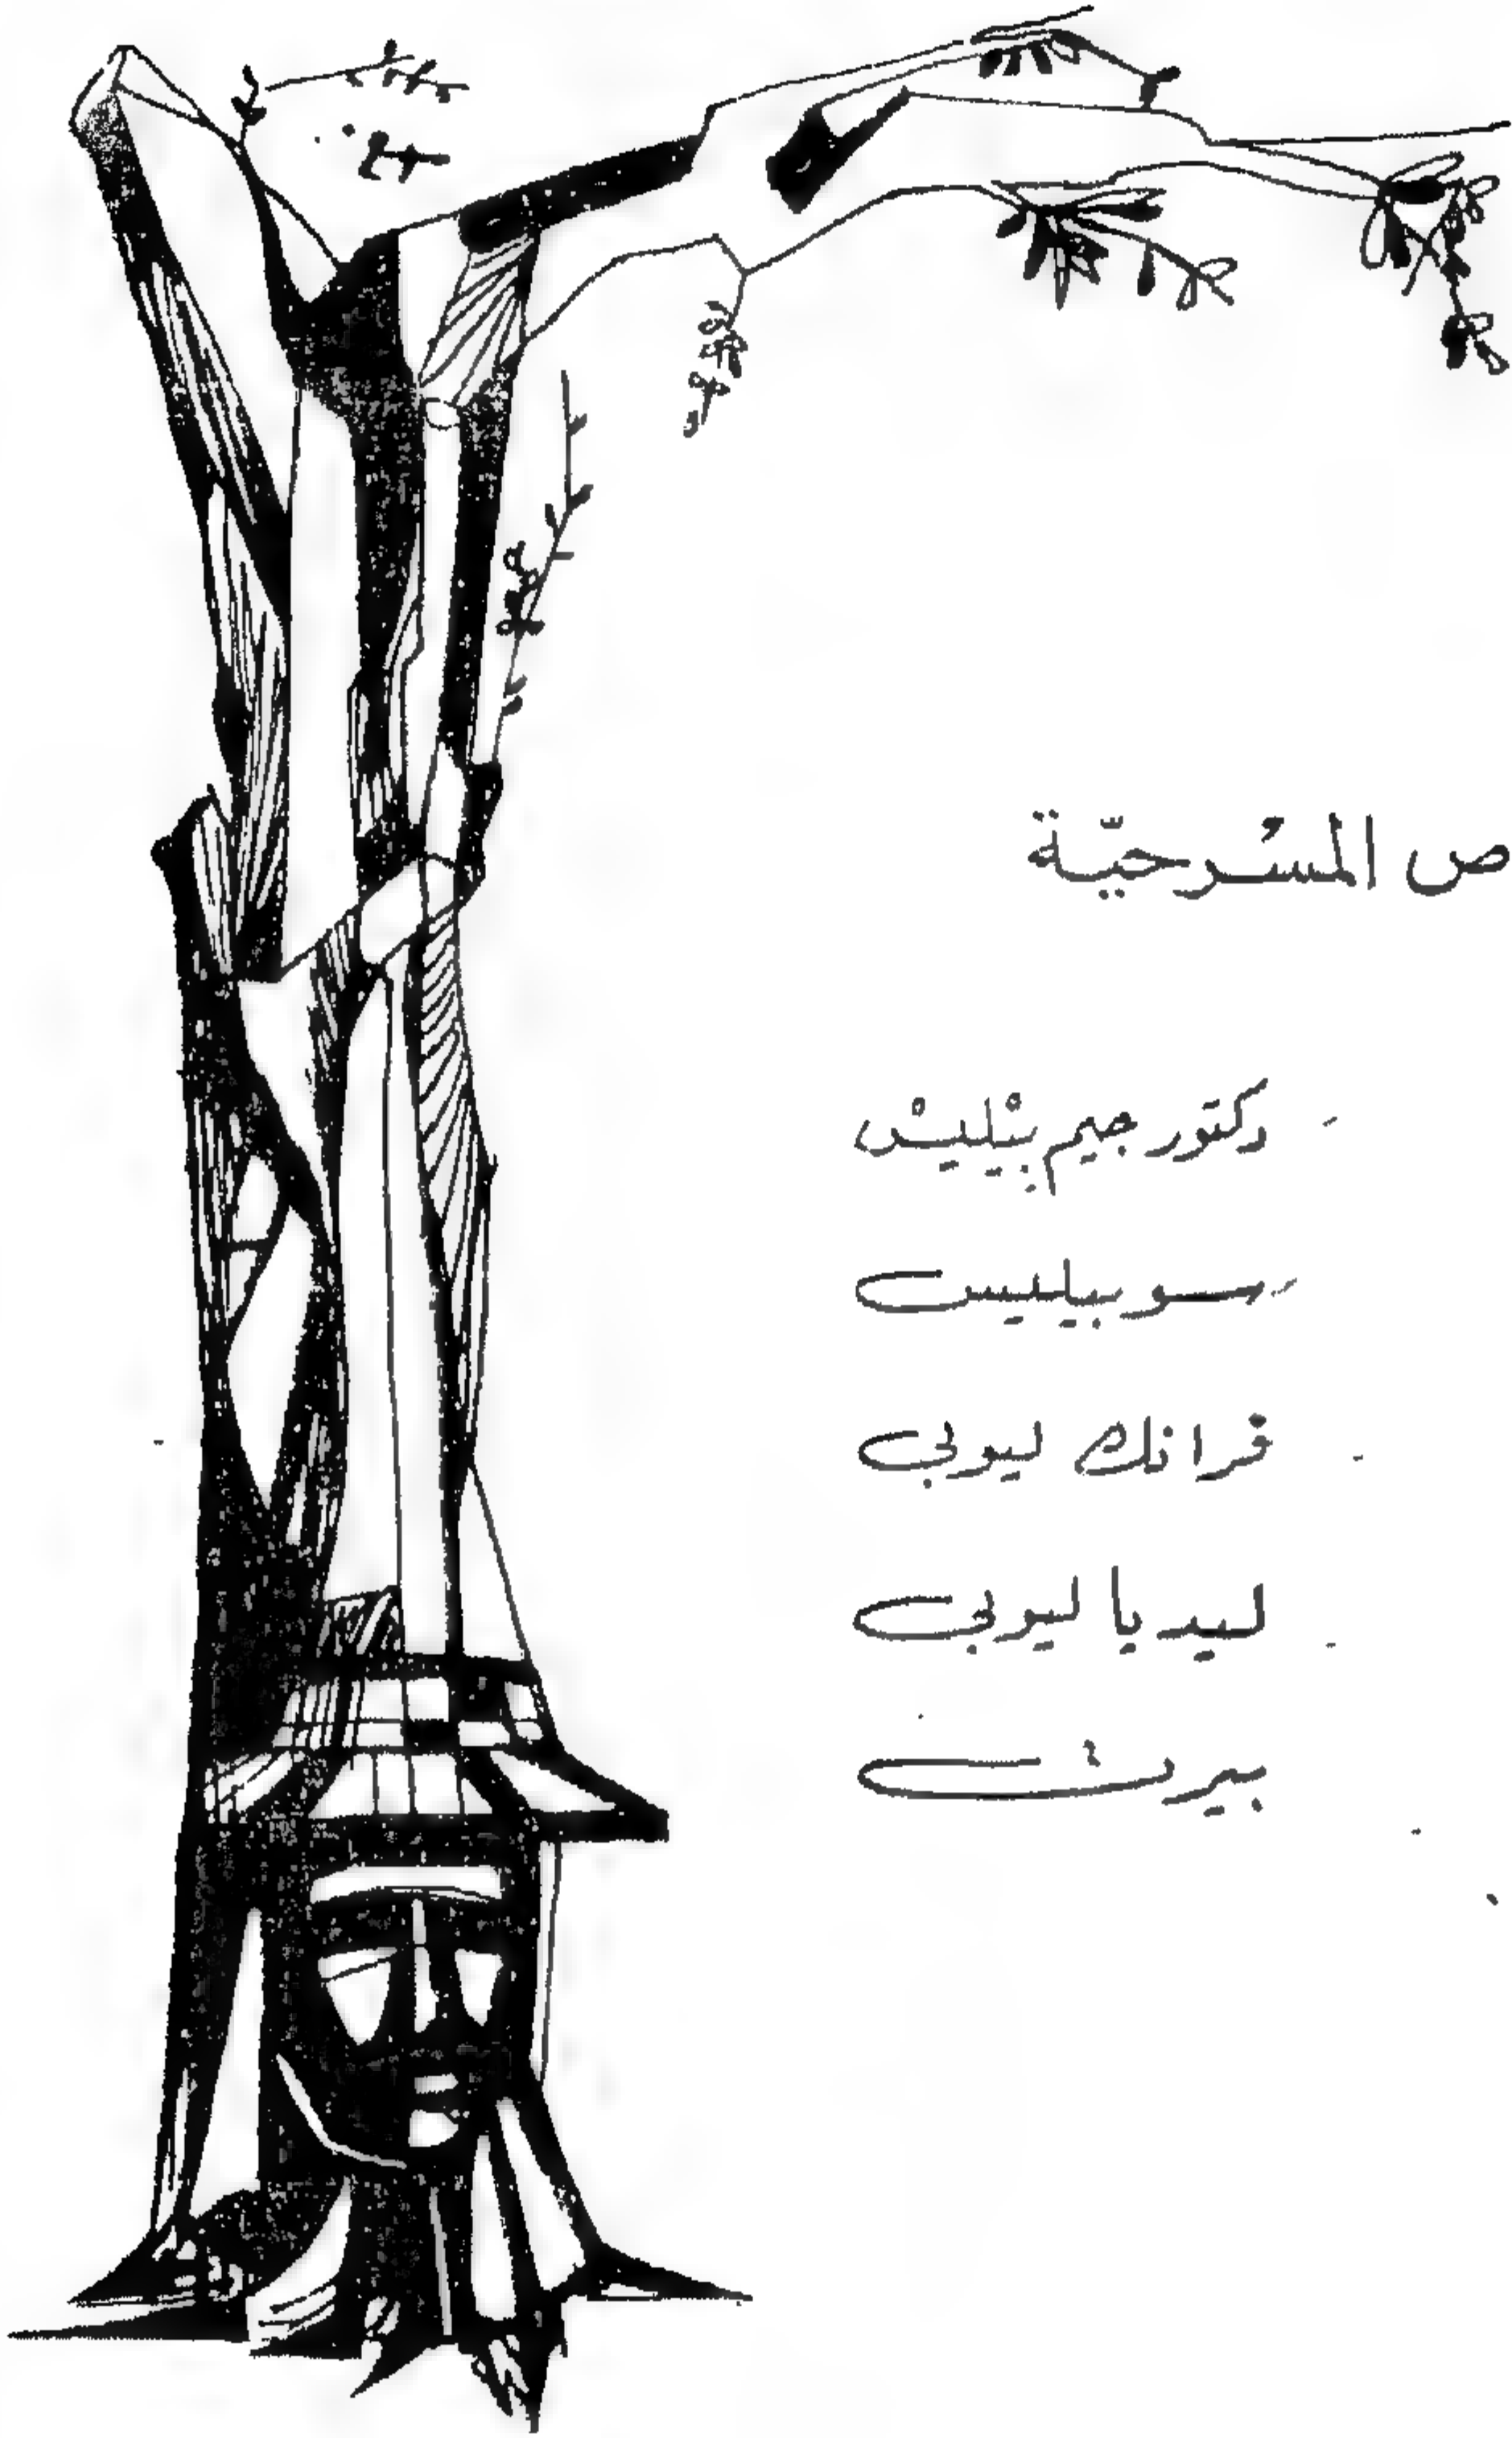 ص المسْرحيّة
- دكتور جيم بيْليسْ
- سو بيليس
- فرانك ليوبى
- ليديا ليوبى
بيرت